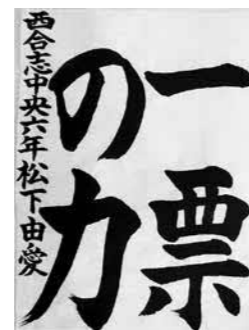 一票
の力
西合志中央六年松下由愛